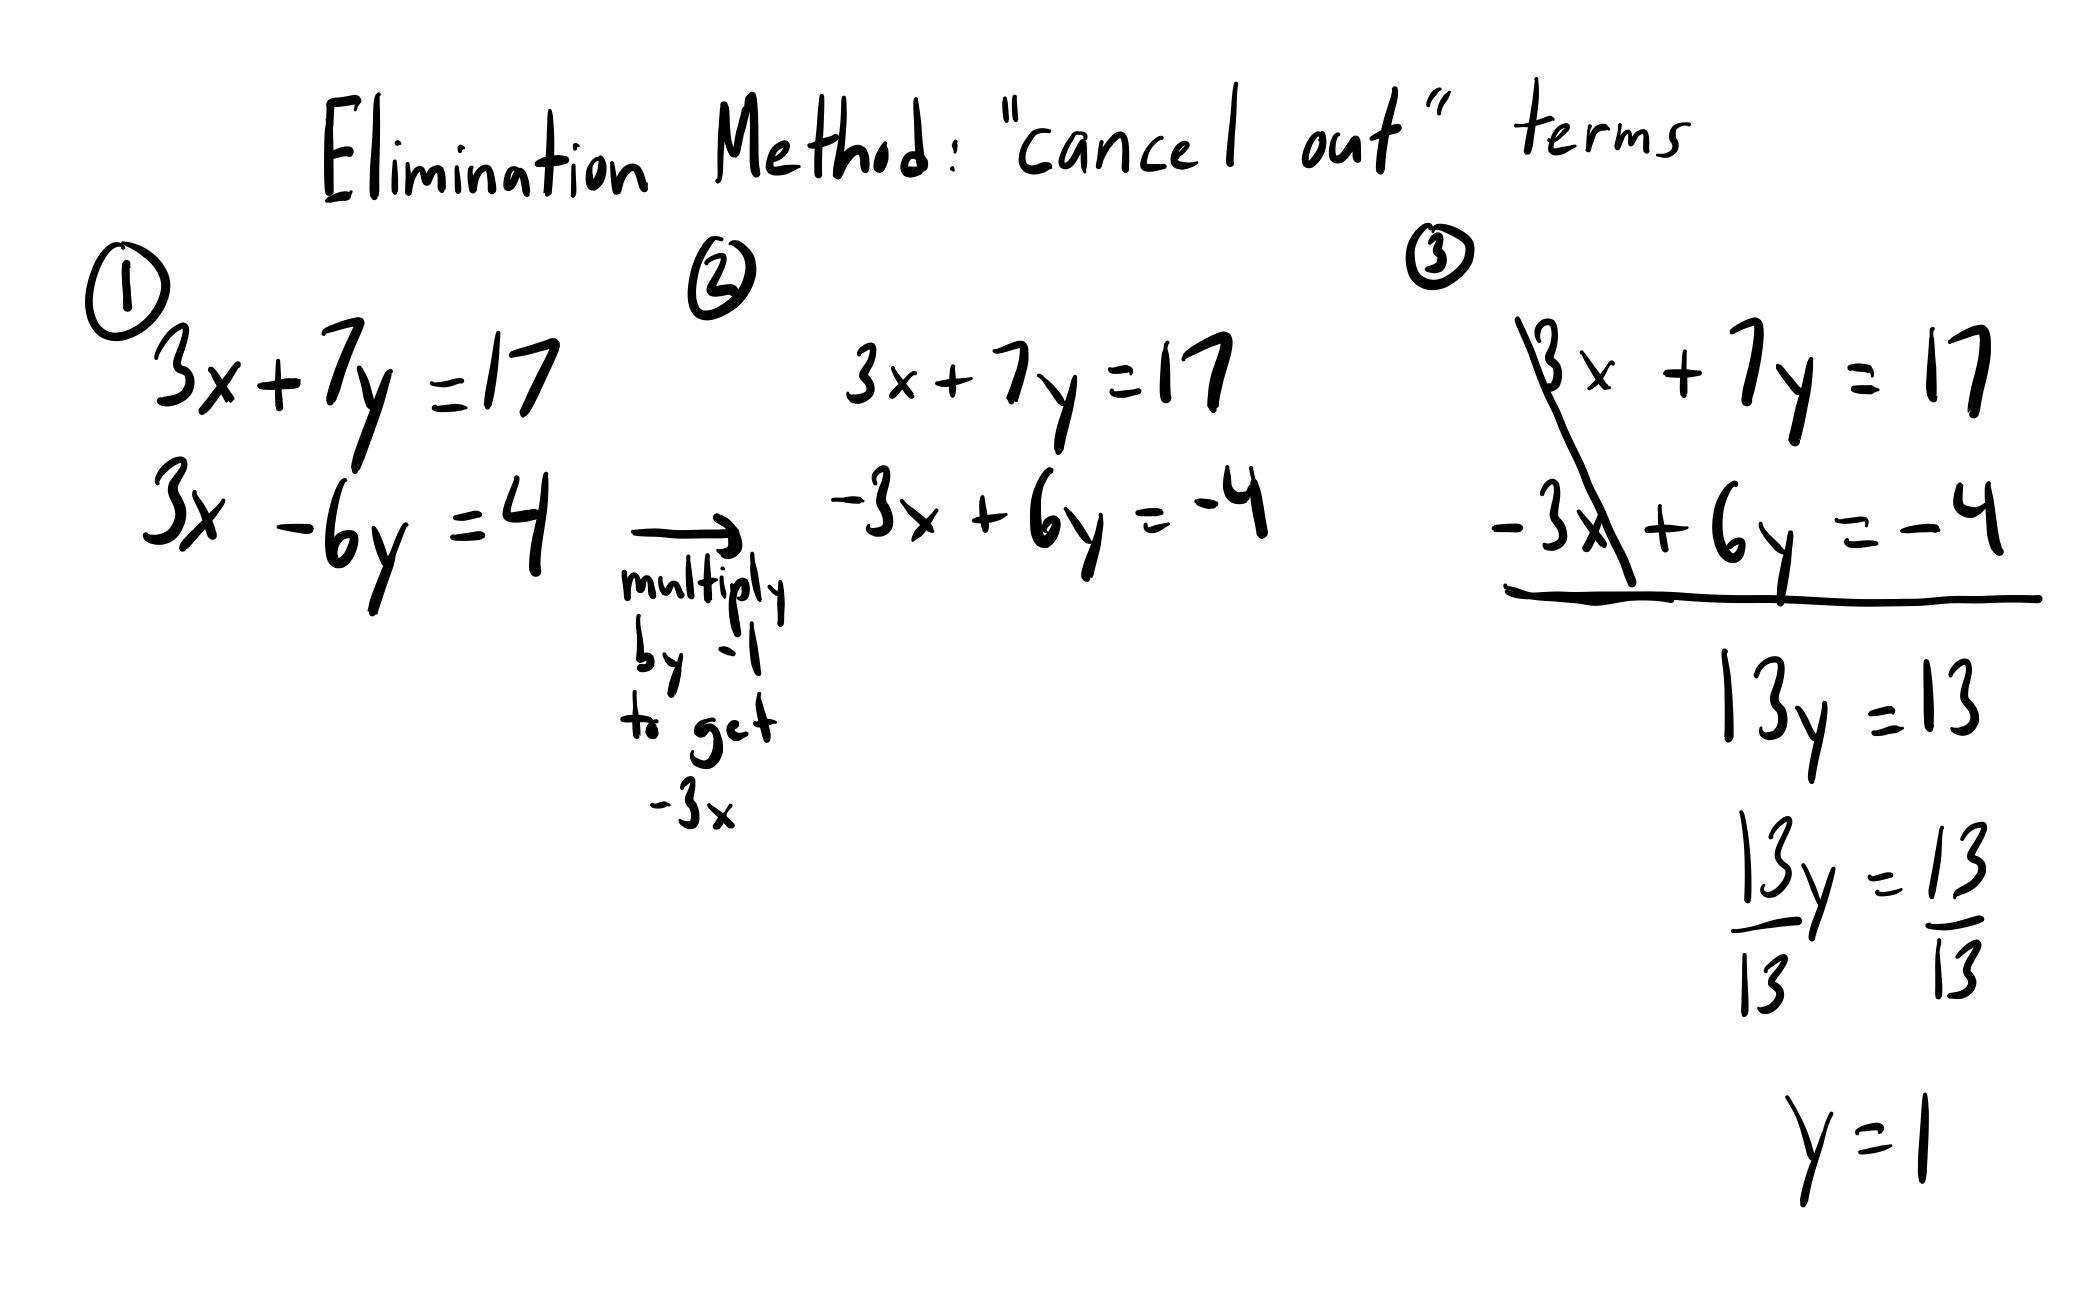 Elimination Method: "cancel out" terms
①
3x + 7y = 17
3x - 6y = 4
→
multiply
by -1
to get
-3x
②
3x + 7y = 17
-3x + 6y = -4
③
3x + 7y = 17
-3x + 6y = -4
13y = 13
13y = 13
13 13
y = 1